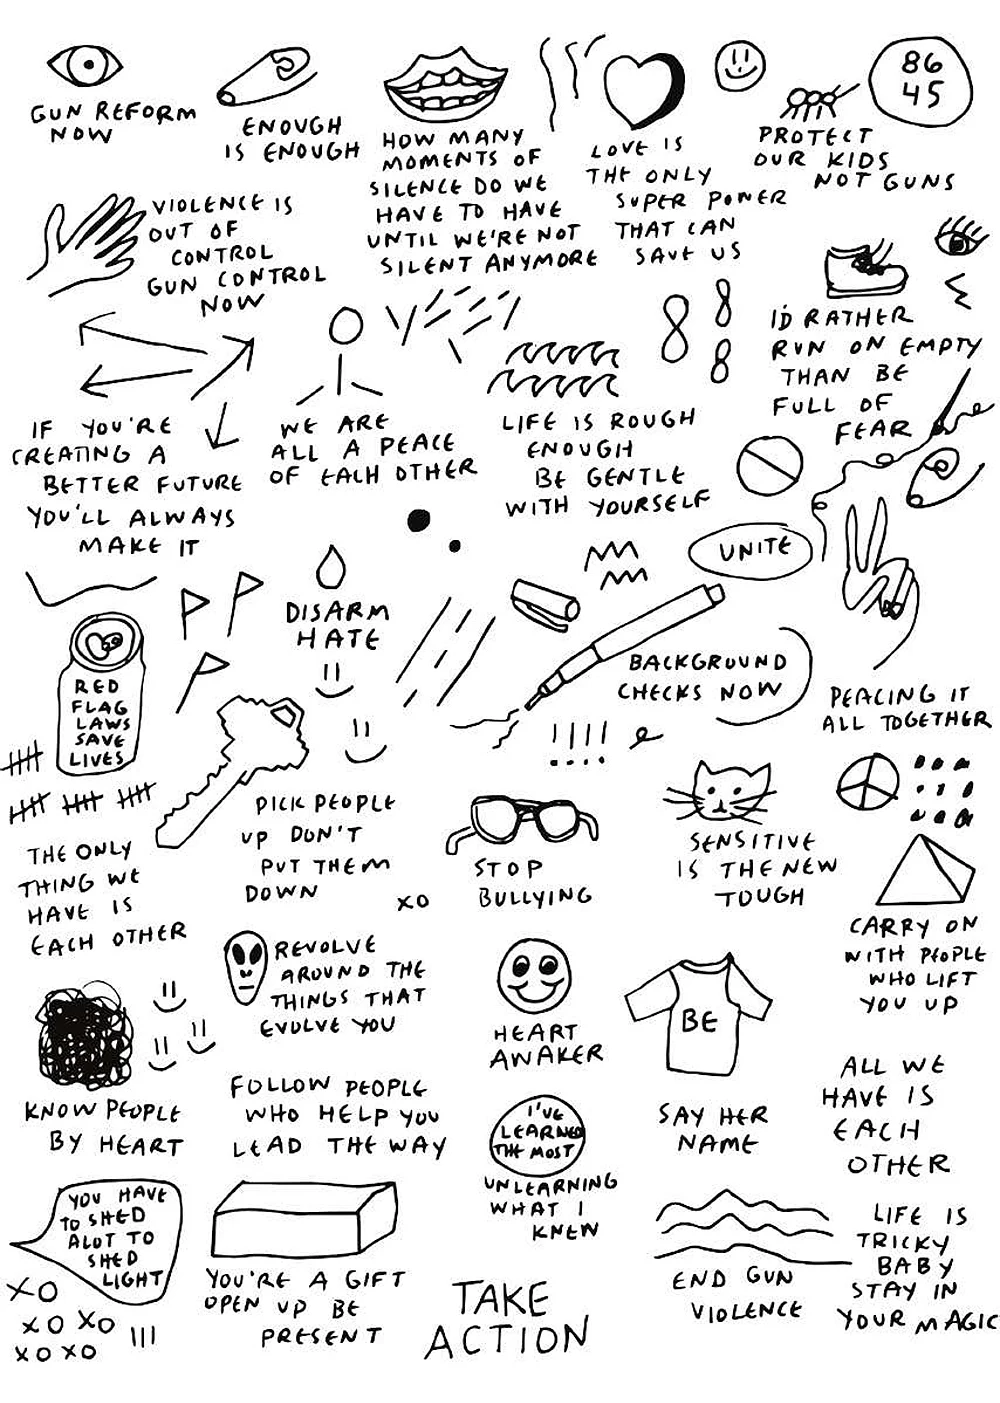 GUN REFORM
NOW
ENOUGH
IS ENOUGH
HOW MANY
MOMENTS OF
SILENCE DO WE
HAVE TO HAVE
UNTIL WE'RE NOT
SILENT ANYMORE
LOVE IS
THE ONLY
SUPER POWER
THAT CAN
SAVE US
PROTECT
OUR KIDS
NOT GUNS
86
45
VIOLENCE IS
OUT OF
CONTROL
GUN CONTROL
NOW
I'D RATHER
RUN ON EMPTY
THAN BE
FULL OF
FEAR
IF YOU'RE
CREATING A
BETTER FUTURE
YOU'LL ALWAYS
MAKE IT
WE ARE
ALL A PEACE
OF EACH OTHER
LIFE IS ROUGH
ENOUGH
BE GENTLE
WITH YOURSELF
UNITE
DISARM
HATE
RED
FLAG
LAWS
SAVE
LIVES
BACKGROUND
CHECKS NOW
PEACING IT
ALL TOGETHER
!!!!
THE ONLY
THING WE
HAVE IS
EACH OTHER
PICK PEOPLE
UP DON'T
PUT THEM
DOWN
XO
STOP
BULLYING
SENSITIVE
IS THE NEW
TOUGH
CARRY ON
WITH PEOPLE
WHO LIFT
YOU UP
REVOLVE
AROUND THE
THINGS THAT
EVOLVE YOU
HEART
AWAKER
BE
SAY HER
NAME
KNOW PEOPLE
BY HEART
FOLLOW PEOPLE
WHO HELP YOU
LEAD THE WAY
I'VE
LEARNED
THE MOST
UNLEARNING
WHAT I
KNEW
ALL WE
HAVE IS
EACH
OTHER
YOU HAVE
TO SHED
ALOT TO
SHED
LIGHT
XO
XO XO
XO XO
YOU'RE A GIFT
OPEN UP BE
PRESENT
TAKE
ACTION
END GUN
VIOLENCE
LIFE IS
TRICKY
BABY
STAY IN
YOUR MAGIC